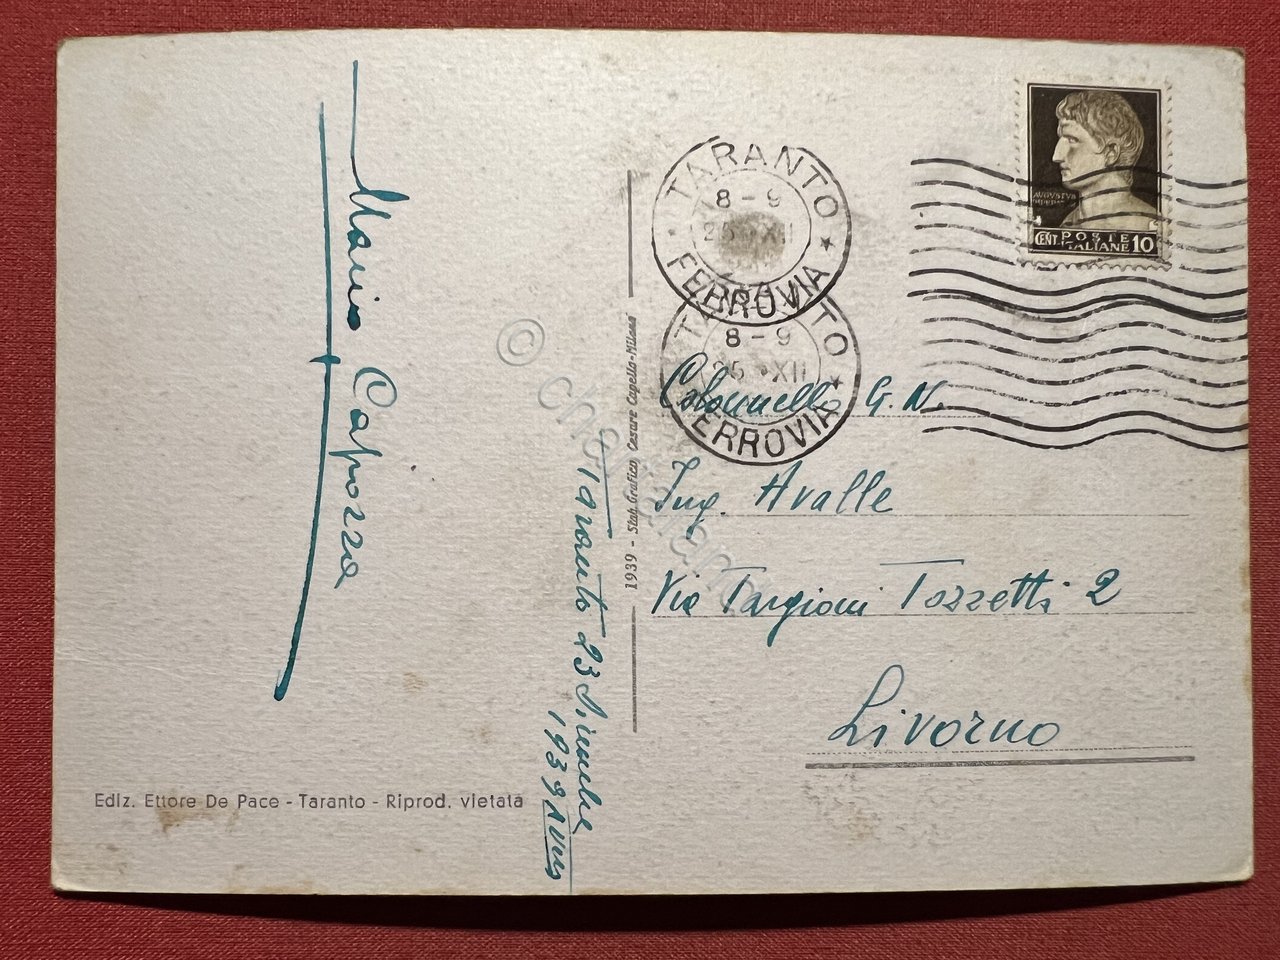 Mario Capozza
Taranto 23 Dicembre
1939 XVIII
Ediz. Ettore De Pace - Taranto - Riprod. vietata
1939 - Stab. Grafico Cesare Capello-Milano
TARANTO
8-9
25 XII
FERROVIA
8-9
25 XII
FERROVIA
AUGUSTUS
POSTE
CENT. ITALIANE 10
Colonnello G. N.
Ing. Avalle
Via Targioni Tozzetti 2
Livorno